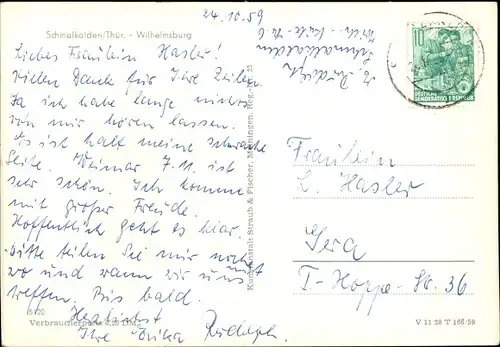 Schmalkalden/Thür. - Wilhelmsburg
24.10.59
Liebes Fräulein Hasler!
Vielen Dank für Ihre Zeilen.
Ja ich habe lange nichts
von mir hören lassen.
Es ist halt meine schwache
Seite. Weimar 7.11. ist
sehr schön. Ich komme
mit großer Freude.
Hoffentlich geht es klar.
Bitte teilen Sie mir noch mit
wo und wann wir uns
treffen. Bis bald.
Herzlichst
Ihre Erika Rudolph
E. Rudolph
Schmalkalden
Kunstanstalt Straub & Fischer, Meiningen,
10
DEUTSCHE
DEMOKRATISCHE REPUBLIK
Fräulein
L. Hasler
Gera
T-Hoppe-Str. 36
Verbraucherpreis 0.20 DM
V 11 28 T 166/59